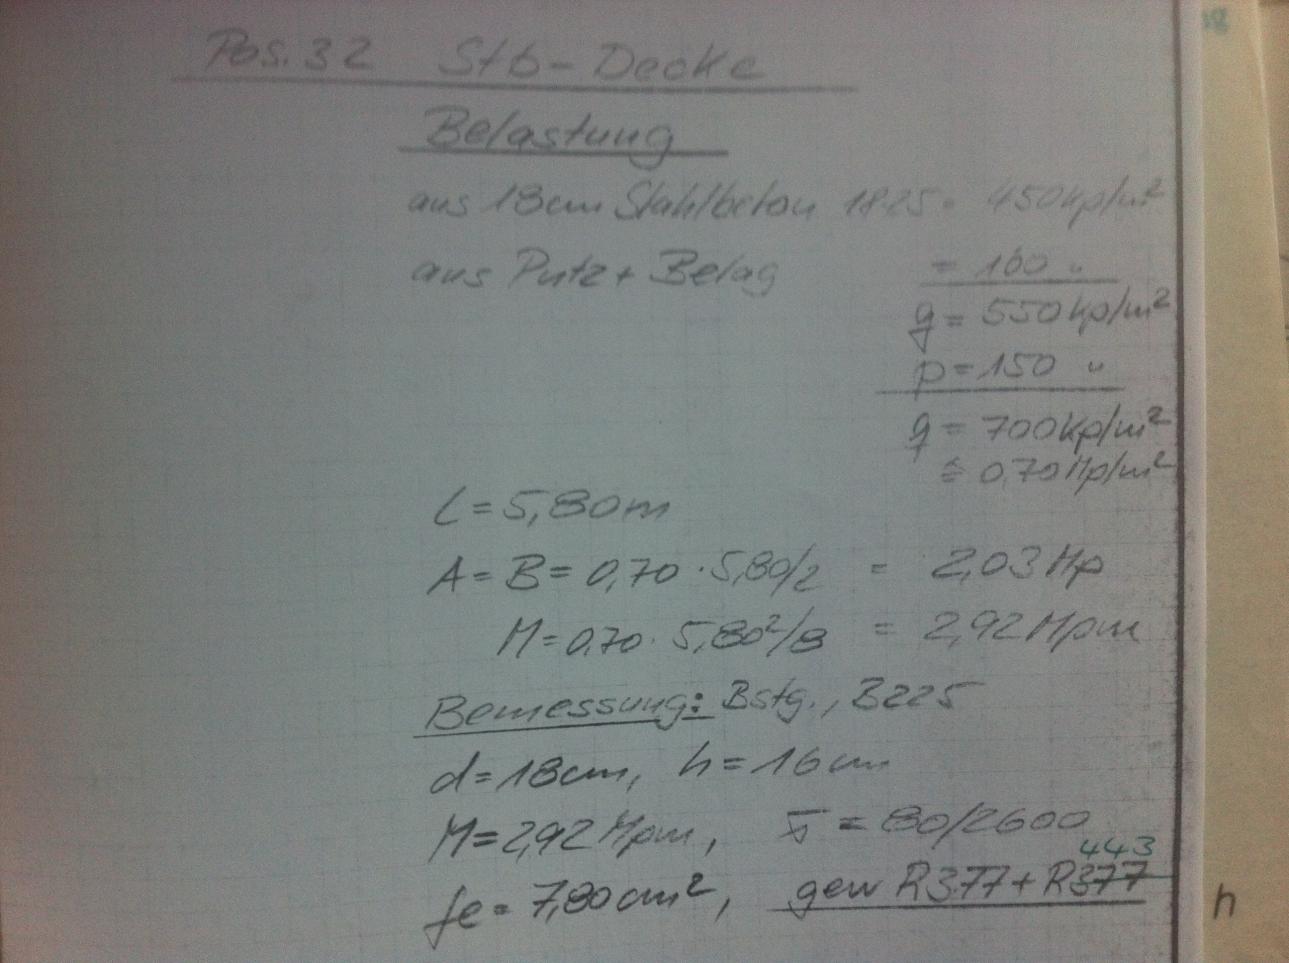 Pos. 32 Stb-Decke
Belastung
aus 18cm Stahlbeton 18·25 = 450kp/m²
aus Putz + Belag = 100 "
g = 550 kp/m²
p = 150 "
q = 700 kp/m²
≙ 0,70 Mp/m²
L = 5,80m
A = B = 0,70 · 5,80/2 = 2,03 Mp
M = 0,70 · 5,80²/8 = 2,92 Mpm
Bemessung: Bstg., B225
d = 18cm, h = 16cm
M = 2,92 Mpm, σ = 80/2600
443
fe = 7,80 cm², gew R377 + R377
n